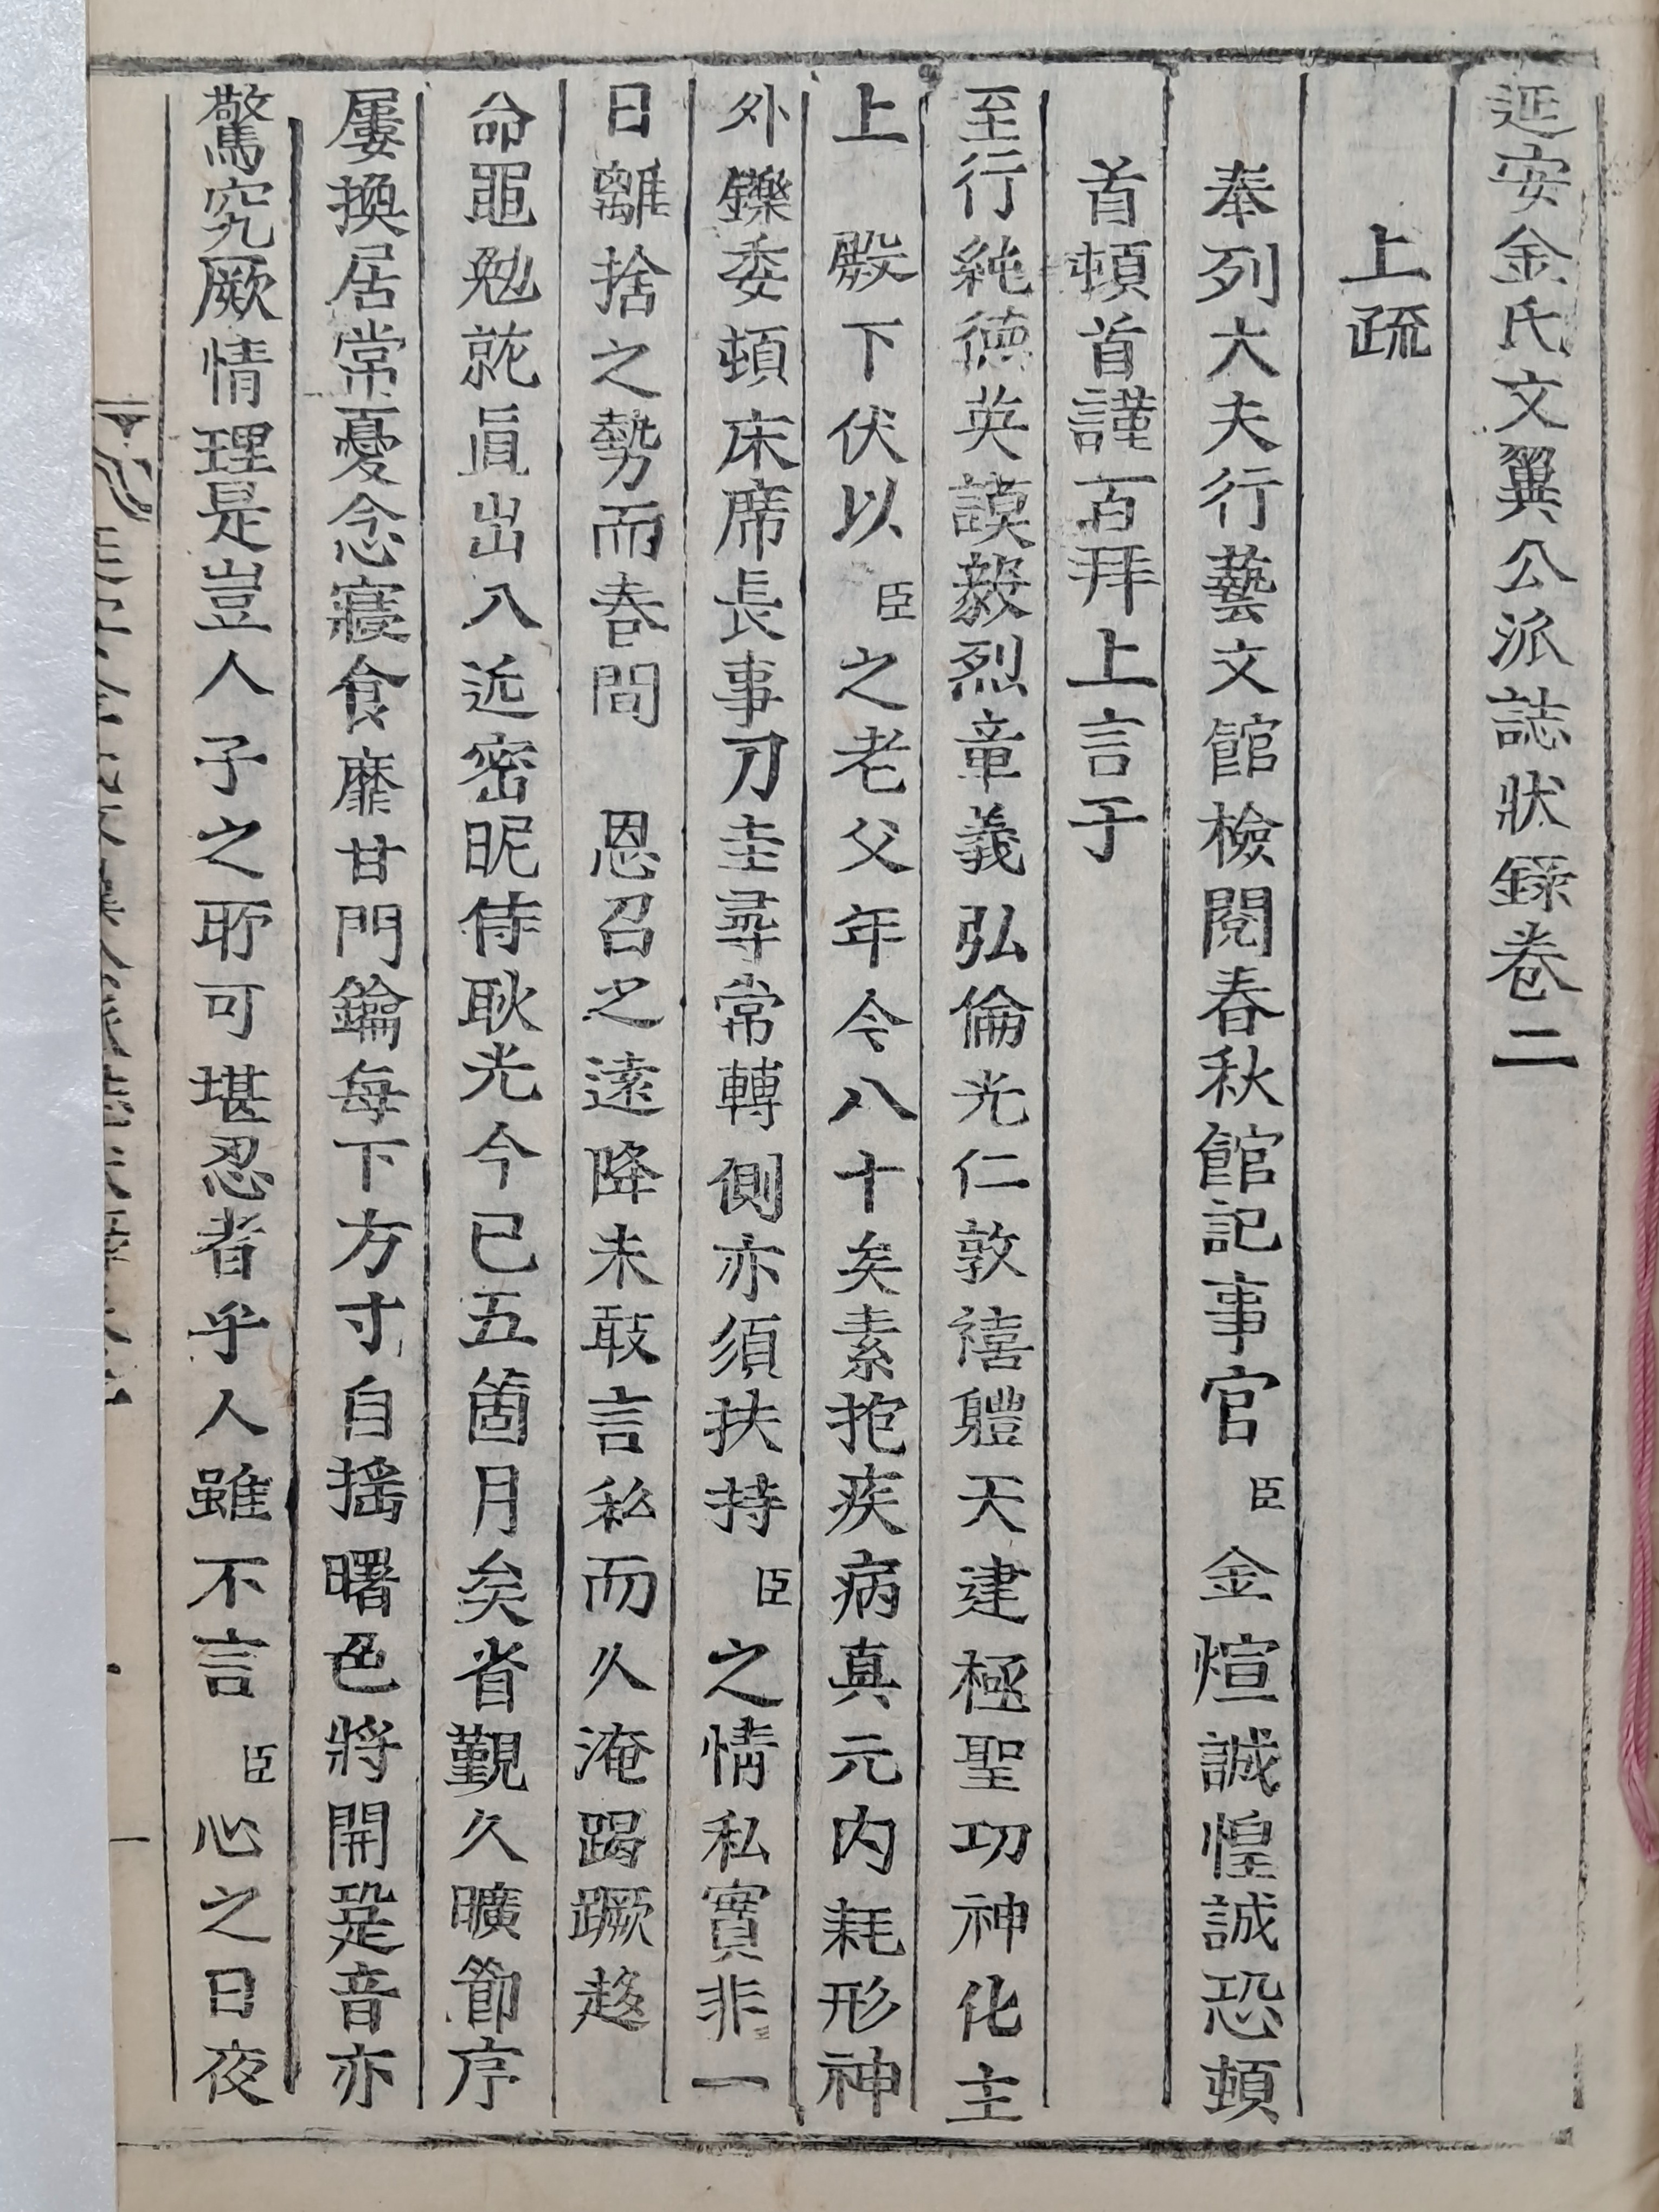 延安金氏文翼公派誌狀錄卷二
上疏
奉列大夫行藝文館檢閱春秋館記事官臣金煊誠惶誠恐頓
首頓首謹百拜上言于
至行純德英謨毅烈章義弘倫光仁敦禧體天建極聖功神化主
上殿下伏以臣之老父年今八十矣素抱疾病真元內耗形神
外鑠委頓床席長事刀圭尋常轉側亦須扶持臣之情私實非一
日離捨之勢而春間恩召之遠降未敢言私而久淹蹋蹶趍
命黽勉就直出入近密昵侍耿光今已五箇月矣省覲久曠節序
屢換居常憂念寢食靡甘門鑰每下方寸自搖曙色將開跫音亦
驚究厥情理是豈人子之所可堪忍者乎人雖不言臣心之日夜
一